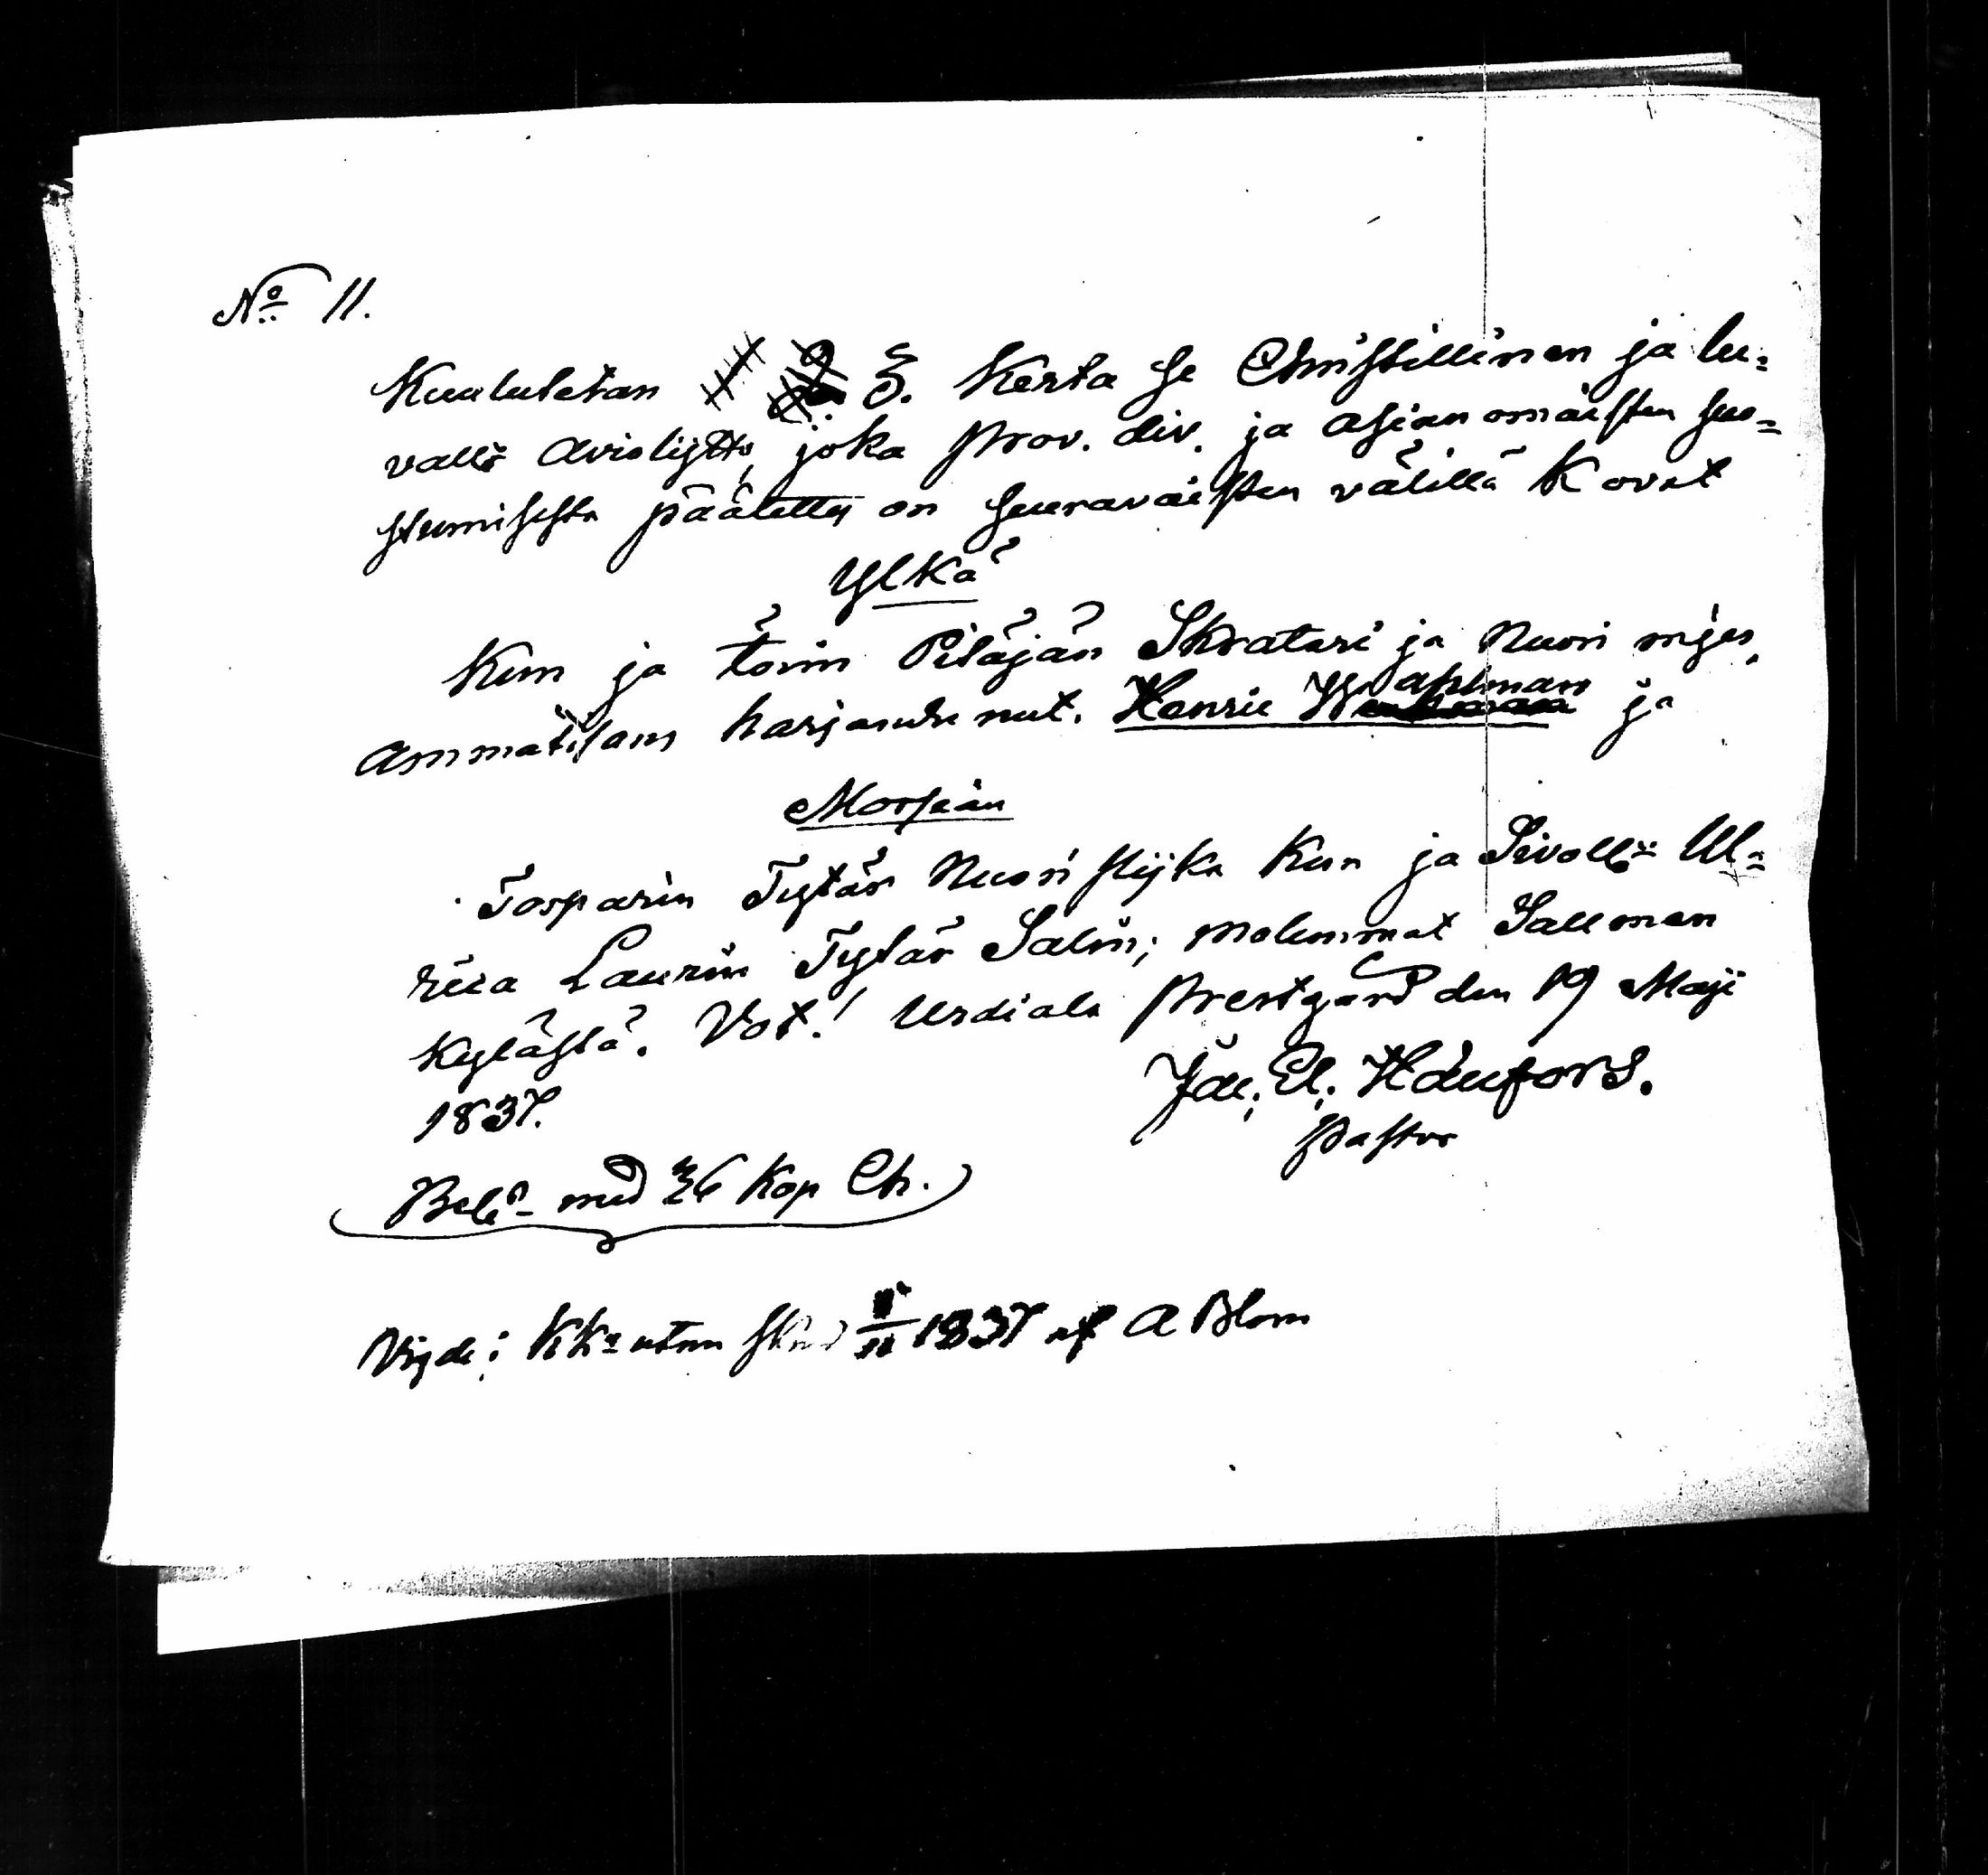 No 11.
Kuulutetan 3. Kerta se Christillinen ja lu=
valls Avioliјtto, joka prov. div. ja asianomaisten suo=
stumisesta päätetty on seuravaisten välillä K ovat
Ylkä
Kun ja toim Pitäjän Skratari ja Nuori mjes,
Ammatisans harjandunut. Henric Wahlman ja
Morsian
Torparin Tytär Nuori pijka Kun ja Sivolls Ul=
rica Laurin Tytär Salin; molemmat Salloman
Kylästä. Vot.! Urdiala Prestgård den 19 Maji
1837.
Jac. El. Häufors.
Pastor
Beld med 36 Kop Ch.
Vigde i KKa utan 1837 af A Blom